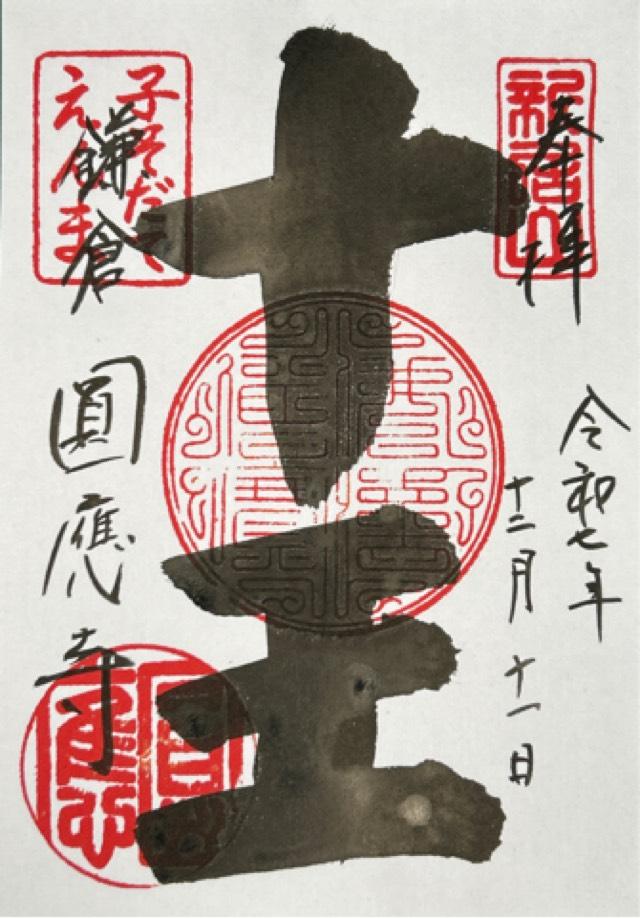 新居山
奉拝
令和七年
十二月十一日
十王
子そだて
えんま
鎌倉
圓應寺